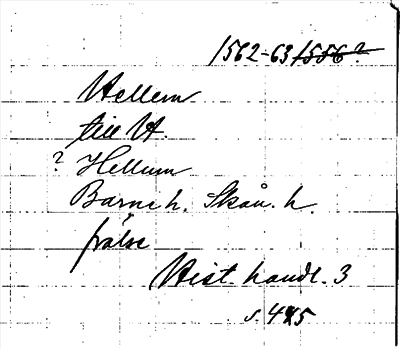 1562-63 1556?
Hellem
till H.
? Hellum
Barne h. Skån. h.
frälse
Hist. handl. 3
s. 475